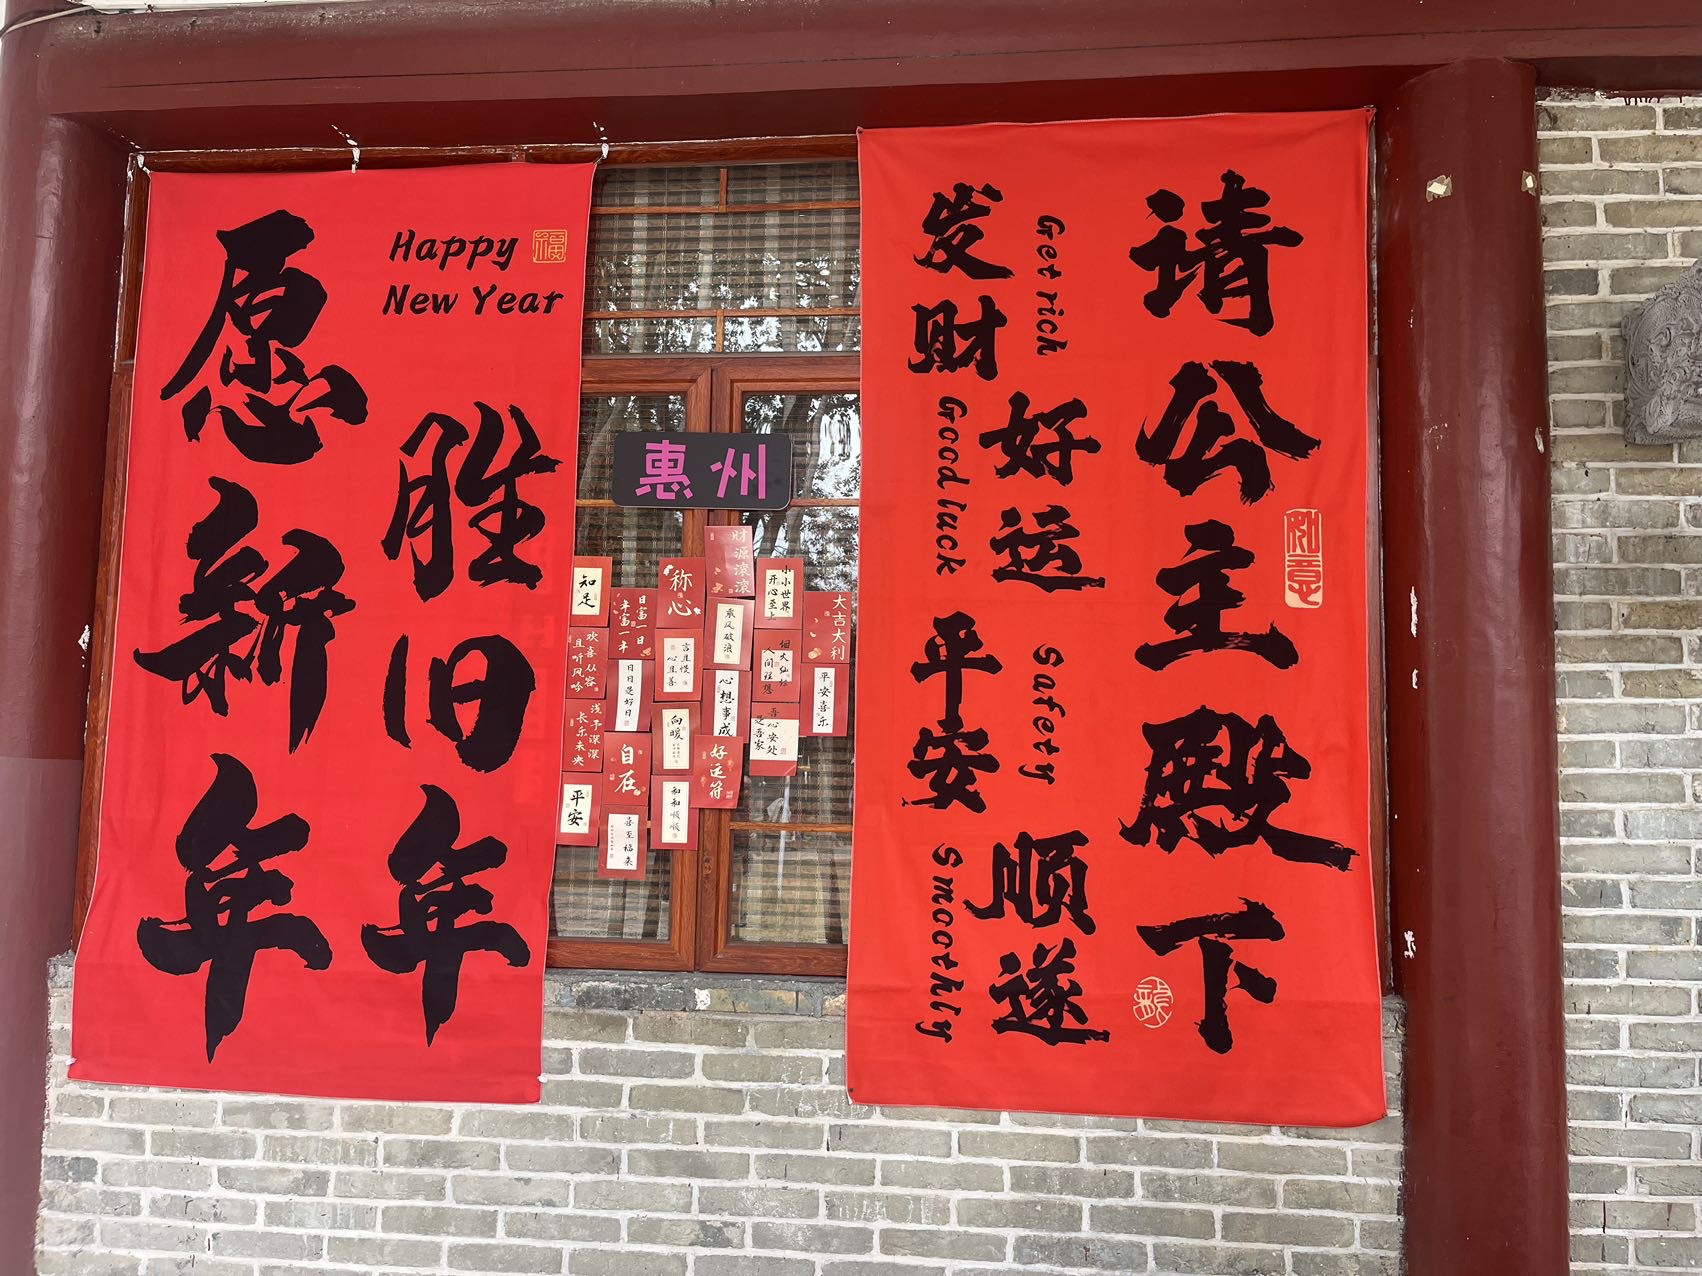 愿新年
胜旧年
Happy
New Year
福
惠州
财源滚滚
称心
知足
小小世界
开心至上
日富一日
年富一年
乘风破浪
大吉大利
欢喜从容
且听风吟
言且慢
心且善
人间理想
日日是好日
平安喜乐
心想事成
浅予深深
长乐未央
向暖
吾心安处
是吾家
自在
好运符
平安
和和顺顺
喜至福来
请公主殿下
发财
Get rich
好运
Good luck
平安
Safety
顺遂
Smoothly
如意
龍